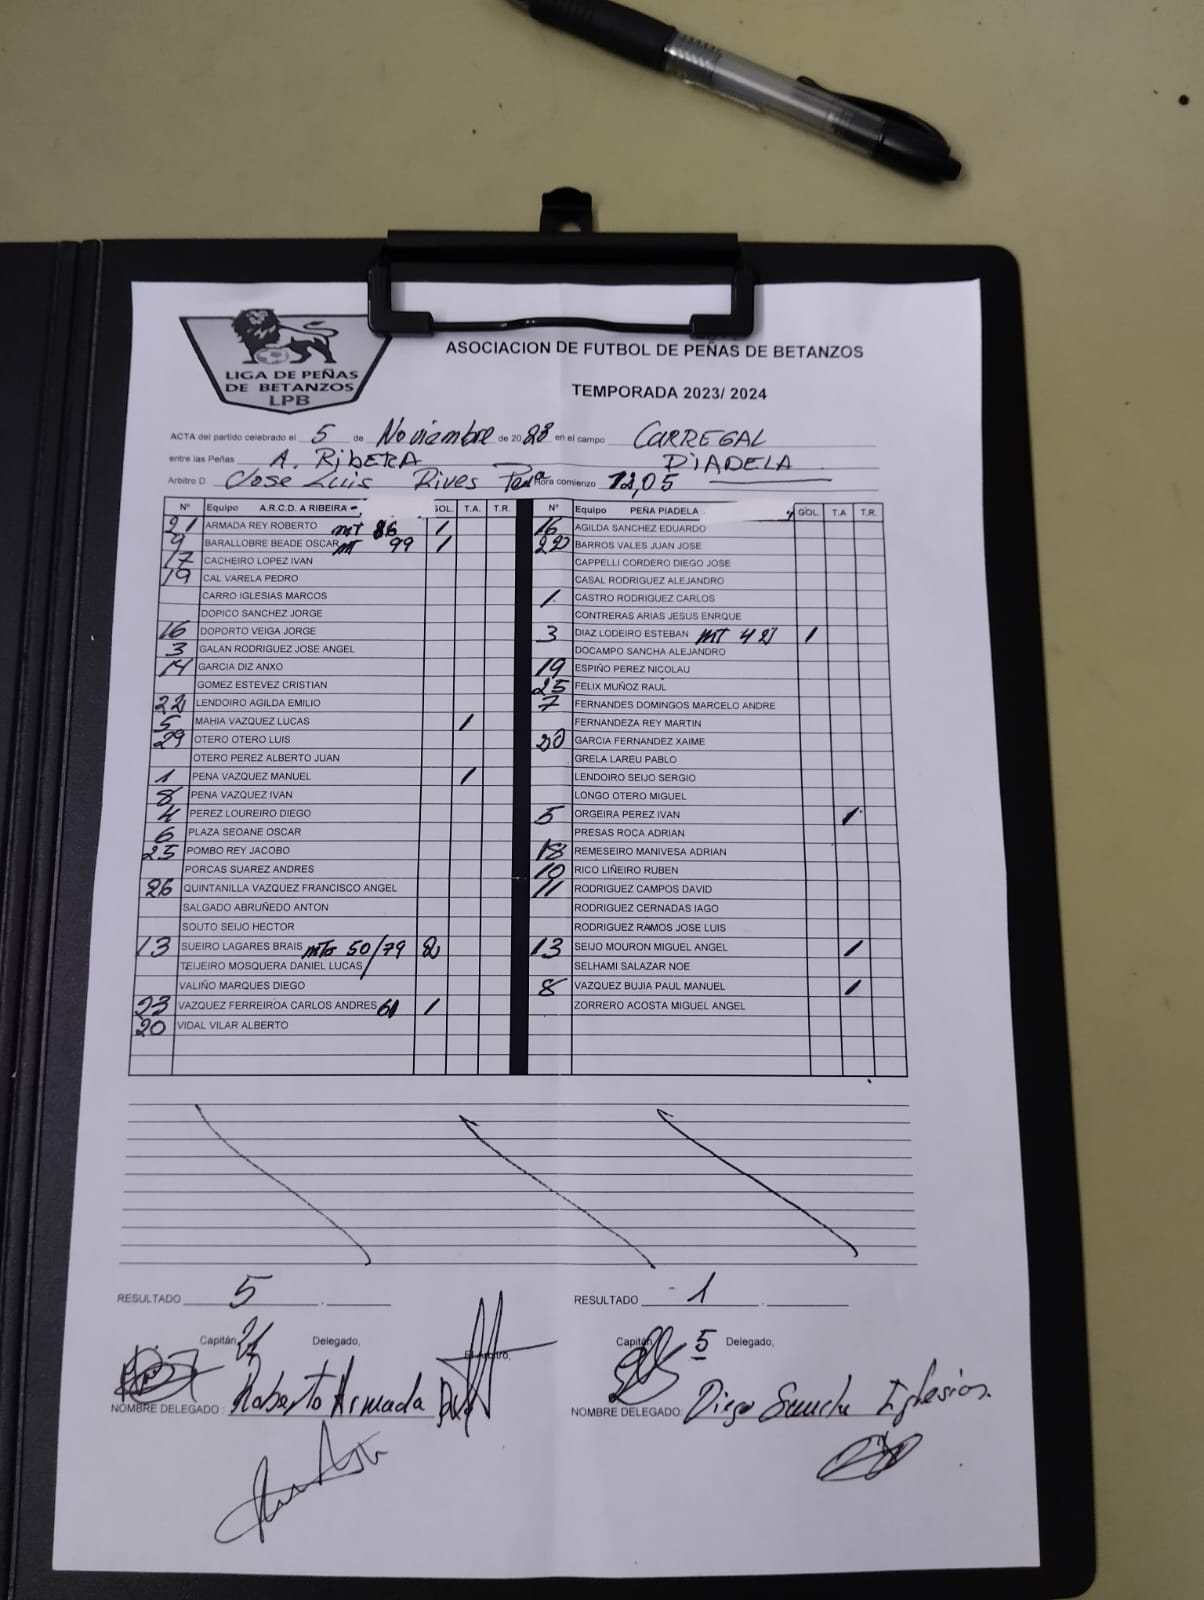 LIGA DE PEÑAS
DE BETANZOS
LPB
ASOCIACION DE FUTBOL DE PEÑAS DE BETANZOS
TEMPORADA 2023/ 2024
ACTA del partido celebrado el 5 de Noviembre de 2023 en el campo CARREGAL
entre las Peñas A. RIBERA PIADELA
Arbitro D. Jose Luis Rives Hora comienzo 12,05
Nº Equipo A.R.C.D. A RIBEIRA GOL. T.A. T.R.
21 ARMADA REY ROBERTO mt 86 1
9 BARALLOBRE BEADE OSCAR mt 99 1
17 CACHEIRO LOPEZ IVAN
19 CAL VARELA PEDRO
CARRO IGLESIAS MARCOS
DOPICO SANCHEZ JORGE
16 DOPORTO VEIGA JORGE
3 GALAN RODRIGUEZ JOSE ANGEL
14 GARCIA DIZ ANXO
GOMEZ ESTEVEZ CRISTIAN
22 LENDOIRO AGILDA EMILIO
5 MAHIA VAZQUEZ LUCAS 1
29 OTERO OTERO LUIS
OTERO PEREZ ALBERTO JUAN
1 PENA VAZQUEZ MANUEL 1
8 PENA VAZQUEZ IVAN
4 PEREZ LOUREIRO DIEGO
6 PLAZA SEOANE OSCAR
25 POMBO REY JACOBO
PORCAS SUAREZ ANDRES
26 QUINTANILLA VAZQUEZ FRANCISCO ANGEL
SALGADO ABRUÑEDO ANTON
SOUTO SEIJO HECTOR
13 SUEIRO LAGARES BRAIS mts 50/79 2
TEIJEIRO MOSQUERA DANIEL LUCAS
VALIÑO MARQUES DIEGO
23 VAZQUEZ FERREIROA CARLOS ANDRES 61 1
20 VIDAL VILAR ALBERTO
Nº Equipo PEÑA PIADELA GOL. T.A T.R.
16 AGILDA SANCHEZ EDUARDO
22 BARROS VALES JUAN JOSE
CAPPELLI CORDERO DIEGO JOSE
CASAL RODRIGUEZ ALEJANDRO
1 CASTRO RODRIGUEZ CARLOS
CONTRERAS ARIAS JESUS ENRQUE
3 DIAZ LODEIRO ESTEBAN MT 42 1
DOCAMPO SANCHA ALEJANDRO
19 ESPIÑO PEREZ NICOLAU
25 FELIX MUÑOZ RAUL
7 FERNANDES DOMINGOS MARCELO ANDRE
FERNANDEZA REY MARTIN
20 GARCIA FERNANDEZ XAIME
GRELA LAREU PABLO
LENDOIRO SEIJO SERGIO
LONGO OTERO MIGUEL
5 ORGEIRA PEREZ IVAN 1
PRESAS ROCA ADRIAN
18 REMESEIRO MANIVESA ADRIAN
10 RICO LIÑEIRO RUBEN
11 RODRIGUEZ CAMPOS DAVID
RODRIGUEZ CERNADAS IAGO
RODRIGUEZ RAMOS JOSE LUIS
13 SEIJO MOURON MIGUEL ANGEL 1
SELHAMI SALAZAR NOE
8 VAZQUEZ BUJIA PAUL MANUEL 1
ZORRERO ACOSTA MIGUEL ANGEL
RESULTADO 5
RESULTADO 1
Capitán 21 Delegado,
El Arbitro,
Capitán 5 Delegado,
NOMBRE DELEGADO: Roberto Armada
NOMBRE DELEGADO: Diego Iglesias